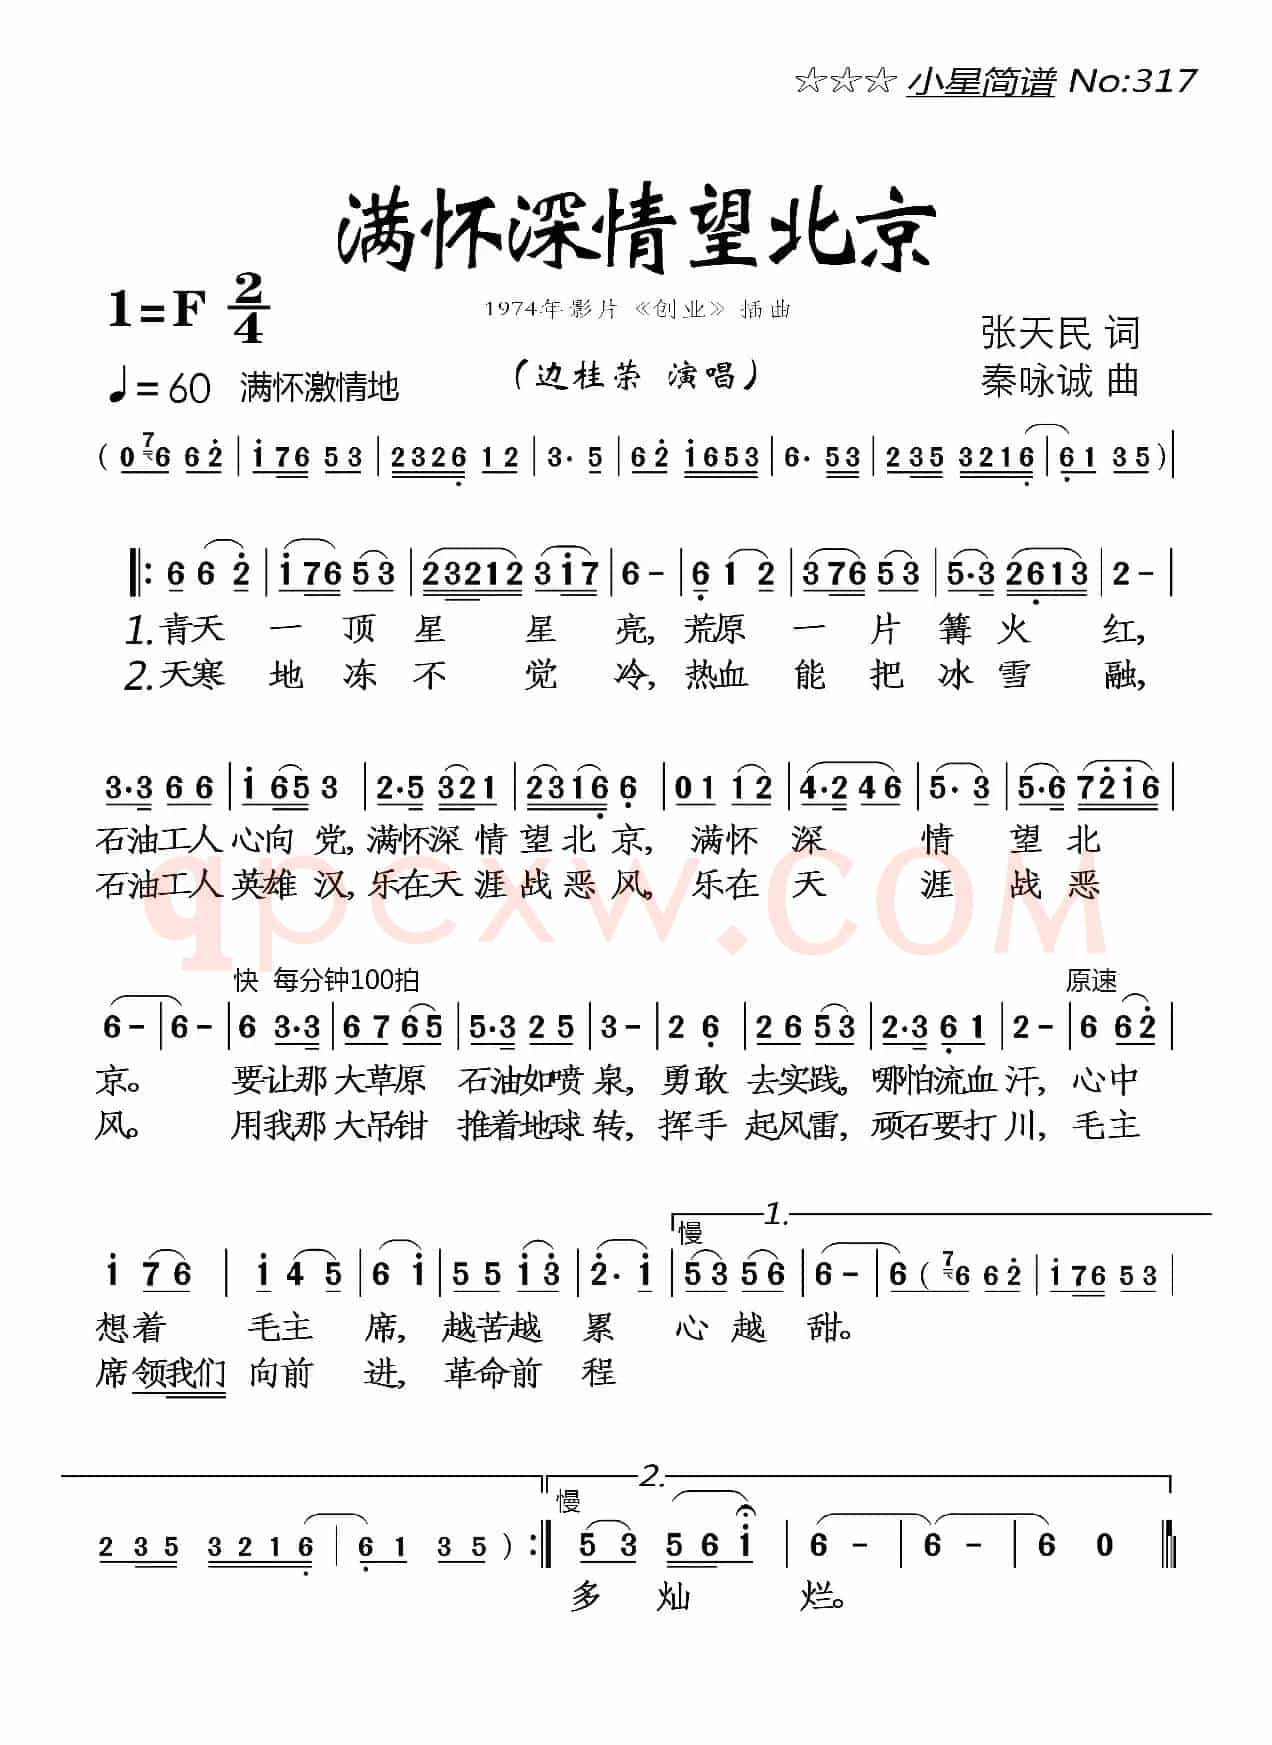 ☆☆☆ 小星简谱 No:317
满怀深情望北京
1=F 2/4
1974年影片《创业》插曲
张天民 词
♩=60 满怀激情地
（边桂荣 演唱）
秦咏诚 曲
( 0 7 6 6 2 | i 7 6 5 3 | 2 3 2 6 1 2 | 3· 5 | 6 2 i 6 5 3 | 6· 5 3 | 2 3 5 3 2 1 6 | 6 1 3 5 ) |
‖: 6 6 2 | i 7 6 5 3 | 2 3 2 1 2 3 i 7 | 6 - | 6 1 2 | 3 7 6 5 3 | 5·3 2 6 1 3 | 2 - |
1.青天 一 顶 星 星 亮, 荒原 一 片 篝 火 红,
2.天寒 地 冻 不 觉 冷, 热血 能 把 冰 雪 融,
3·3 6 6 | i 6 5 3 | 2·5 3 2 1 | 2 3 1 6 6 | 0 1 1 2 | 4·2 4 6 | 5· 3 | 5·6 7 2 i 6 |
石油工人 心向 党, 满怀深 情 望 北 京, 满怀 深 情 望 北
石油工人 英雄 汉, 乐在天 涯 战 恶 风, 乐在 天 涯 战 恶
qpcxw.COM
快 每分钟100拍 原速
6 - | 6 - | 6 3·3 | 6 7 6 5 | 5·3 2 5 | 3 - | 2 6 | 2 6 5 3 | 2·3 6 1 | 2 - | 6 6 2 |
京。 要让那 大草原 石油如喷 泉, 勇敢 去实践, 哪怕流血 汗, 心中
风。 用我那 大吊钳 推着地球 转, 挥手 起风雷, 顽石要打 川, 毛主
1.
慢
i 7 6 | i 4 5 | 6 i | 5 5 i 3 | 2· i | 5 3 5 6 | 6 - | 6 ( 7 6 6 2 | i 7 6 5 3 |
想着 毛主 席, 越苦越 累 心 越 甜。
席领我们 向前 进, 革命前 程
2.
慢
2 3 5 3 2 1 6 | 6 1 3 5 ) :‖ 5 3 5 6 i | 6 - | 6 - | 6 0 ‖
多 灿 烂。